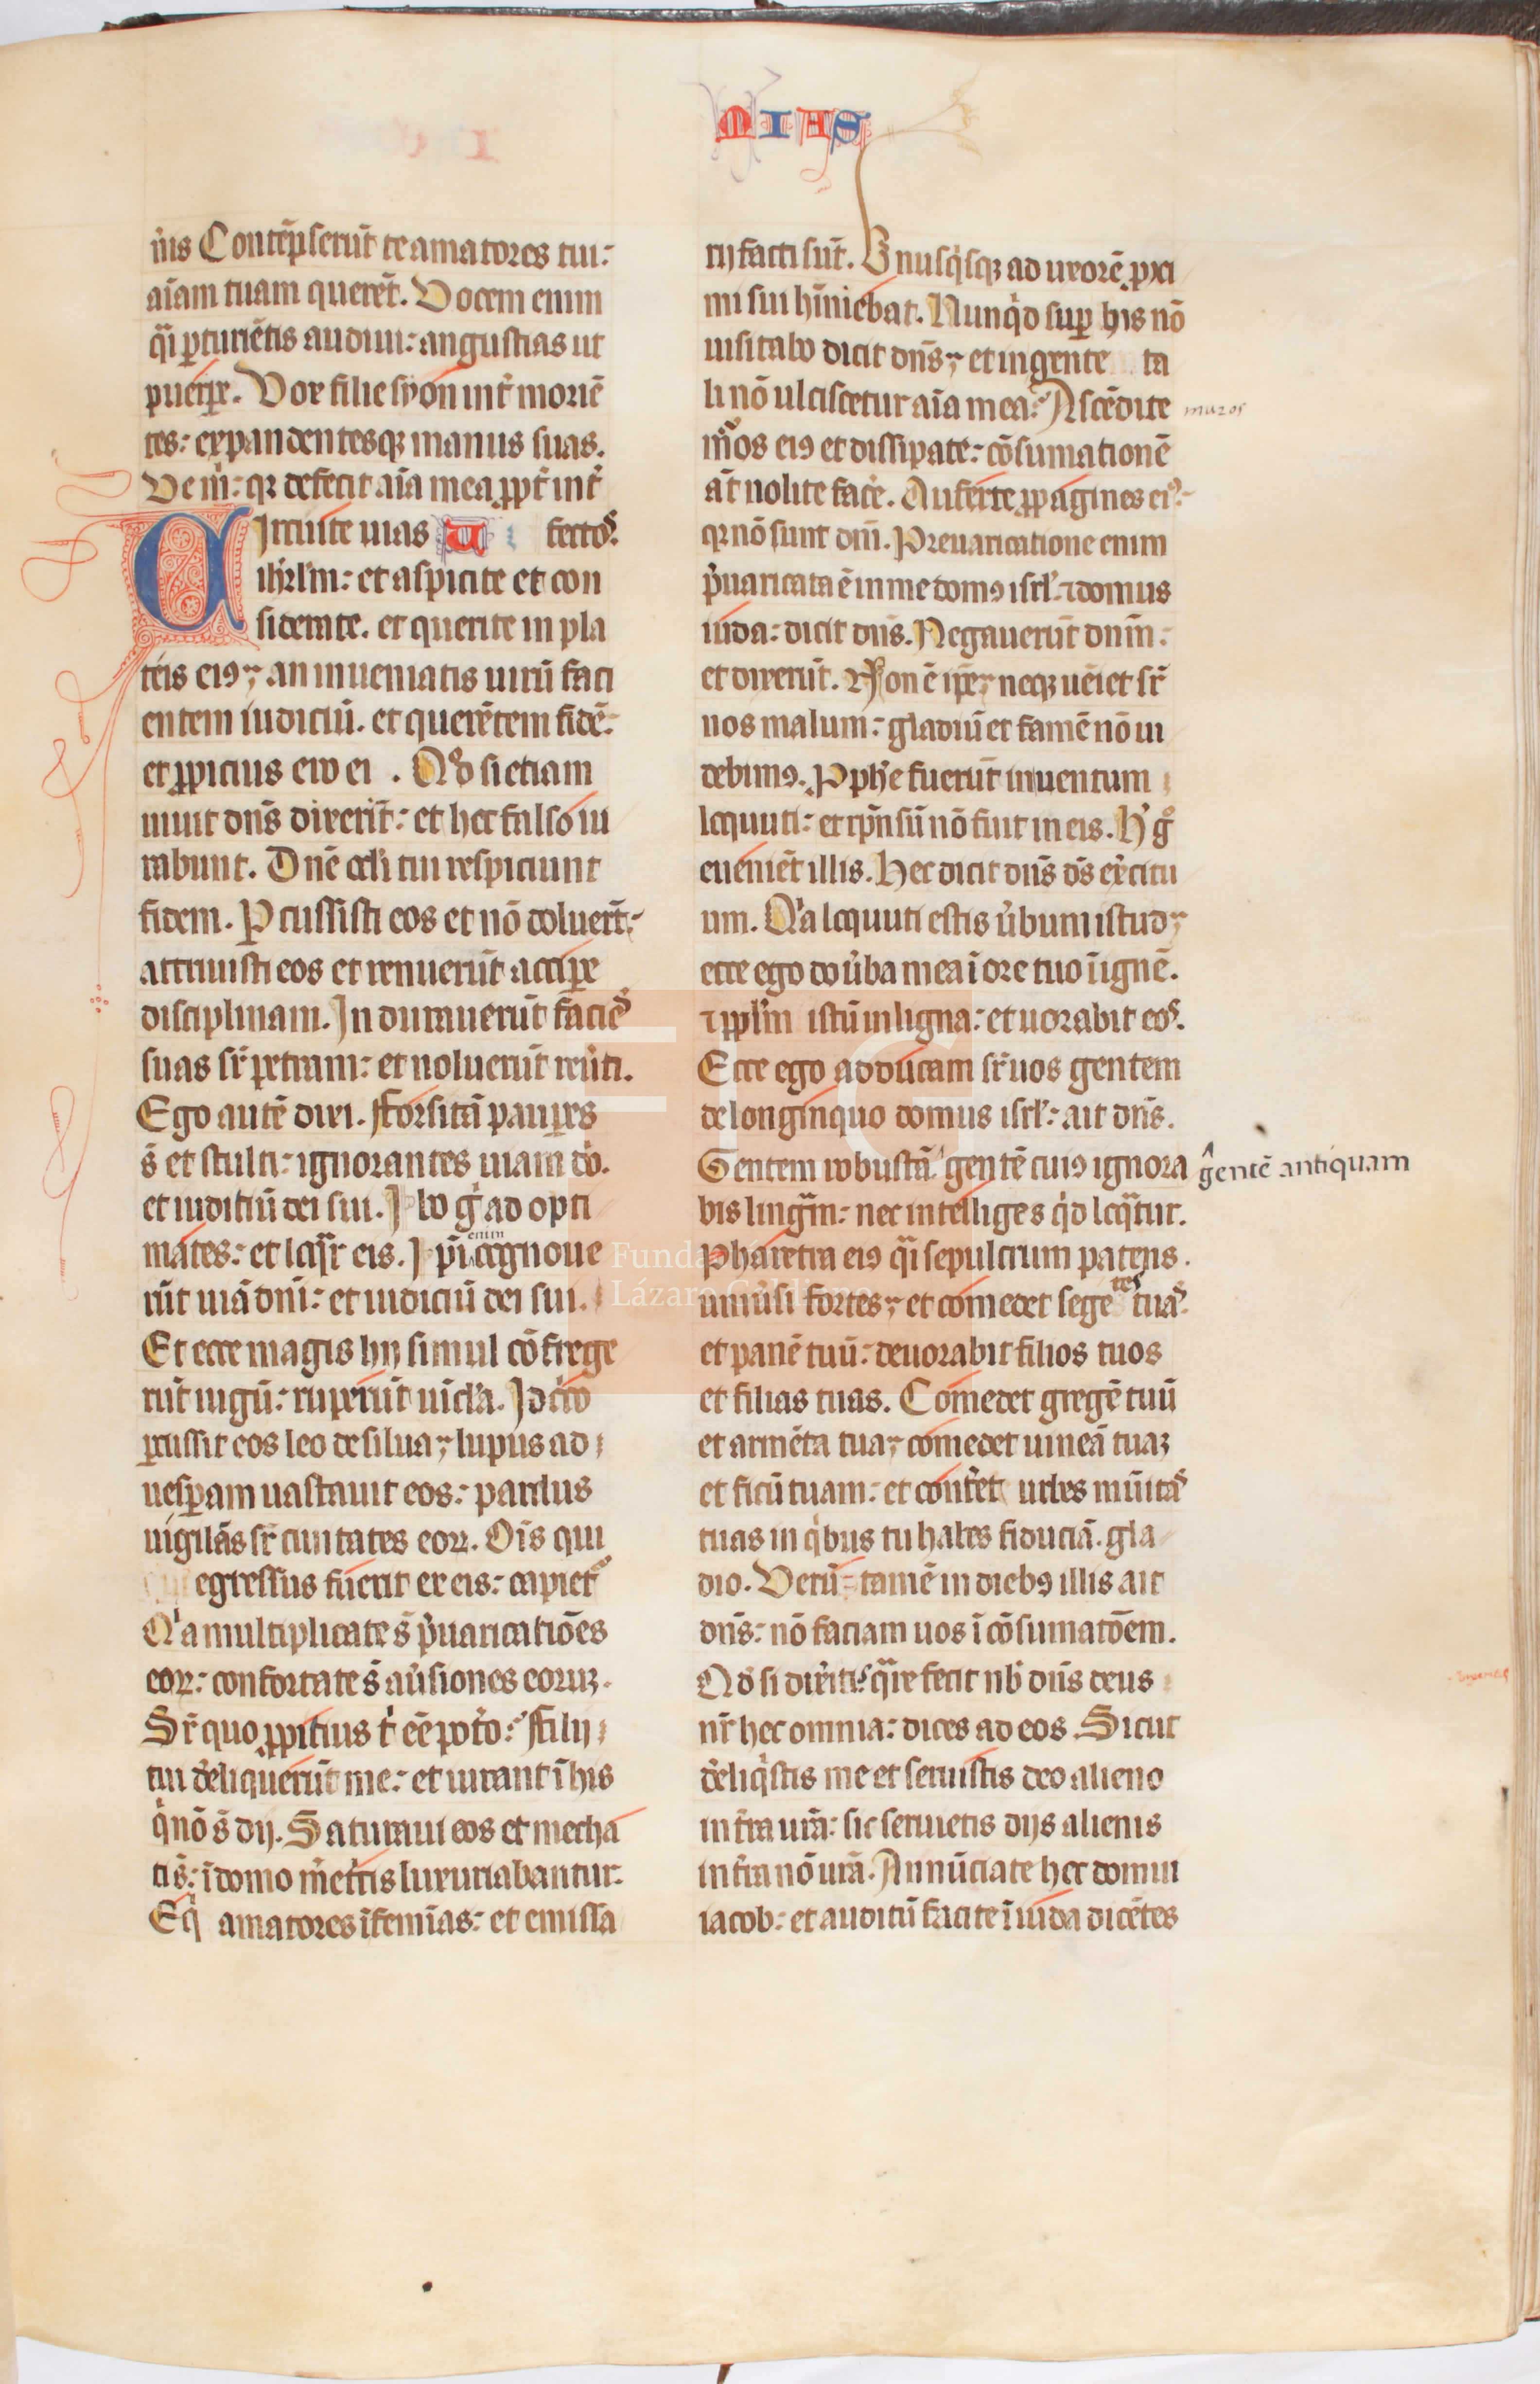 MIAS
nis Contēpserūt te amatores tui:
aīam tuam querēt. Vocem enim
qͣi ꝑturiētis audiui: angustias ut
puerꝑe. Vox filie syon int̄ morıē
tes: expandentesqꝫ manus suas.
Ve m̄: qꝛ defecit aīa mea ꝓpt̄ int̄
fectoꝭ.
Circuite uias V
ihrl̄m: et aspicite et con
siderate. et querite in pla
teis eiꝰ; an inueniatis uirū faci
entem iudiciū. et querētem fidē:
et ꝓpicius ero ei . Qď si etiam
uiuit dn̄s dixerīt: et hec falso iu
rabunt. Dn̄e oc̄li tui respiciunt
fidem. Percussisti eos et nō doluer̄t:
attriuisti eos et renuerūt acciꝑe
disciplinam. Indurauerūt facieˢ
suas sr̄ petram: et noluerūt reu̓ti.
Ego autē dixi. Fforsitā pauꝑes
s̄ et stulti: ignorantes uiam do̓.
et iuditiū dei sui. Ibo g̓ ad opti
mates: et loqͣr eis. Ip̄i enim cognoue
rūt uiā dn̄i: et iudiciū dei sui.
Et ecce magis hij simul cōfrege
rūt iugū: ruperūt uic̄la. Idcirco
ꝑcussit eos leo de silua; lupus ad
uesꝑam uastauit eos: pardus
uigilās sr̄ ciuitates eoꝝ. Oīs qui
egressus fuerit ex eis: capietᷣ
Qͥa multiplicate s̄ p̓uaricatiōes
eoꝝ: confortate s̄ au̓siones eoruꝫ.
Sr̄ quo ꝓpitius t̄ eē pot̓o: Ffilij
tui dereliquerūt me: et iurant ī his
q̓ nō s̄ dij. Saturaui eos et mecha
ti s̄: ī domo m̓et̓cis luxuriabantur.
Eqͥ amatores ī femīas: et emissa
rij facti sūt. Vnusqͥsqꝫ ad uxorē ꝓxi
mi sui hīniebat. Nunqͥd suꝑ his nō
uisitabo dicit dn̄s; et in gente ta
li nō ulciscetur aīa mea: Ascēdite
muros
mͬos eiꝰ et dissipate: cōsumationē
aūt nolite face̓. Auferte ꝓpagines eiꝰ:
qꝛ nō sunt dn̄i. Preuaricatione enim
p̓uaricata ē in me domꝰ isrl̄: ⁊ domus
iuda: dicit dn̄s. Negauerūt dn̄m:
et dixerūt. Non ē ip̄e; neqꝫ uēiet sr̄
nos malum: gladiū et famē nō ui
debimꝰ. Pꝓphe fuerūt in uentum
loquuti: et rn̄sū nō fuit in eis. H̓ g̊
eueniēt illis. Hec dicit dn̄s d̄s exe̓citu
um. Qͥa loquuti estis u̓bum istud;
ecce ego do u̓ba mea ī ore tuo ī ignē.
⁊ ppl̄m istū in ligna: et uorabit eoˢ.
Ecce ego adducam sr̄ uos gentem
de longinquo domus isrl̄: ait dn̄s.
Gentem robustā gentē cuiꝰ ignora
gentē antiquam
bis lingͣm: nec intelliges qͥd loqͣtur.
Pharetra eiꝰ qͣi sepulcrum patens.
uniu̓si fortes; et comedet segetes tuaˢ.
et panē tuū: deuorabit filios tuos
et filias tuas. Comedet gregē tuū
et armēta tua; comedet uineā tuaꝫ
et ficū tuam: et conte̓et urbes mūitaˢ
tuas in qͥbus tu habes fiduciā. gla
dio. Verū tamē in diebꝰ illis ait
dn̄s: nō faciam uos ī cōsumatōem.
Qď si dixe̓itis qͣre fecit nb̓ dn̄s deus
nr̄ hec omnia: dices ad eos. Sicut
de̓liqͥstis me et seruistis deo alieno
in t̓ra ur̄a: sic seruietis dijs alienis
in t̓ra nō ur̄a. Annūciate hec domui
iacob: et auditū facite ī iuda dicētes
FLG
Lázaro Galdiano